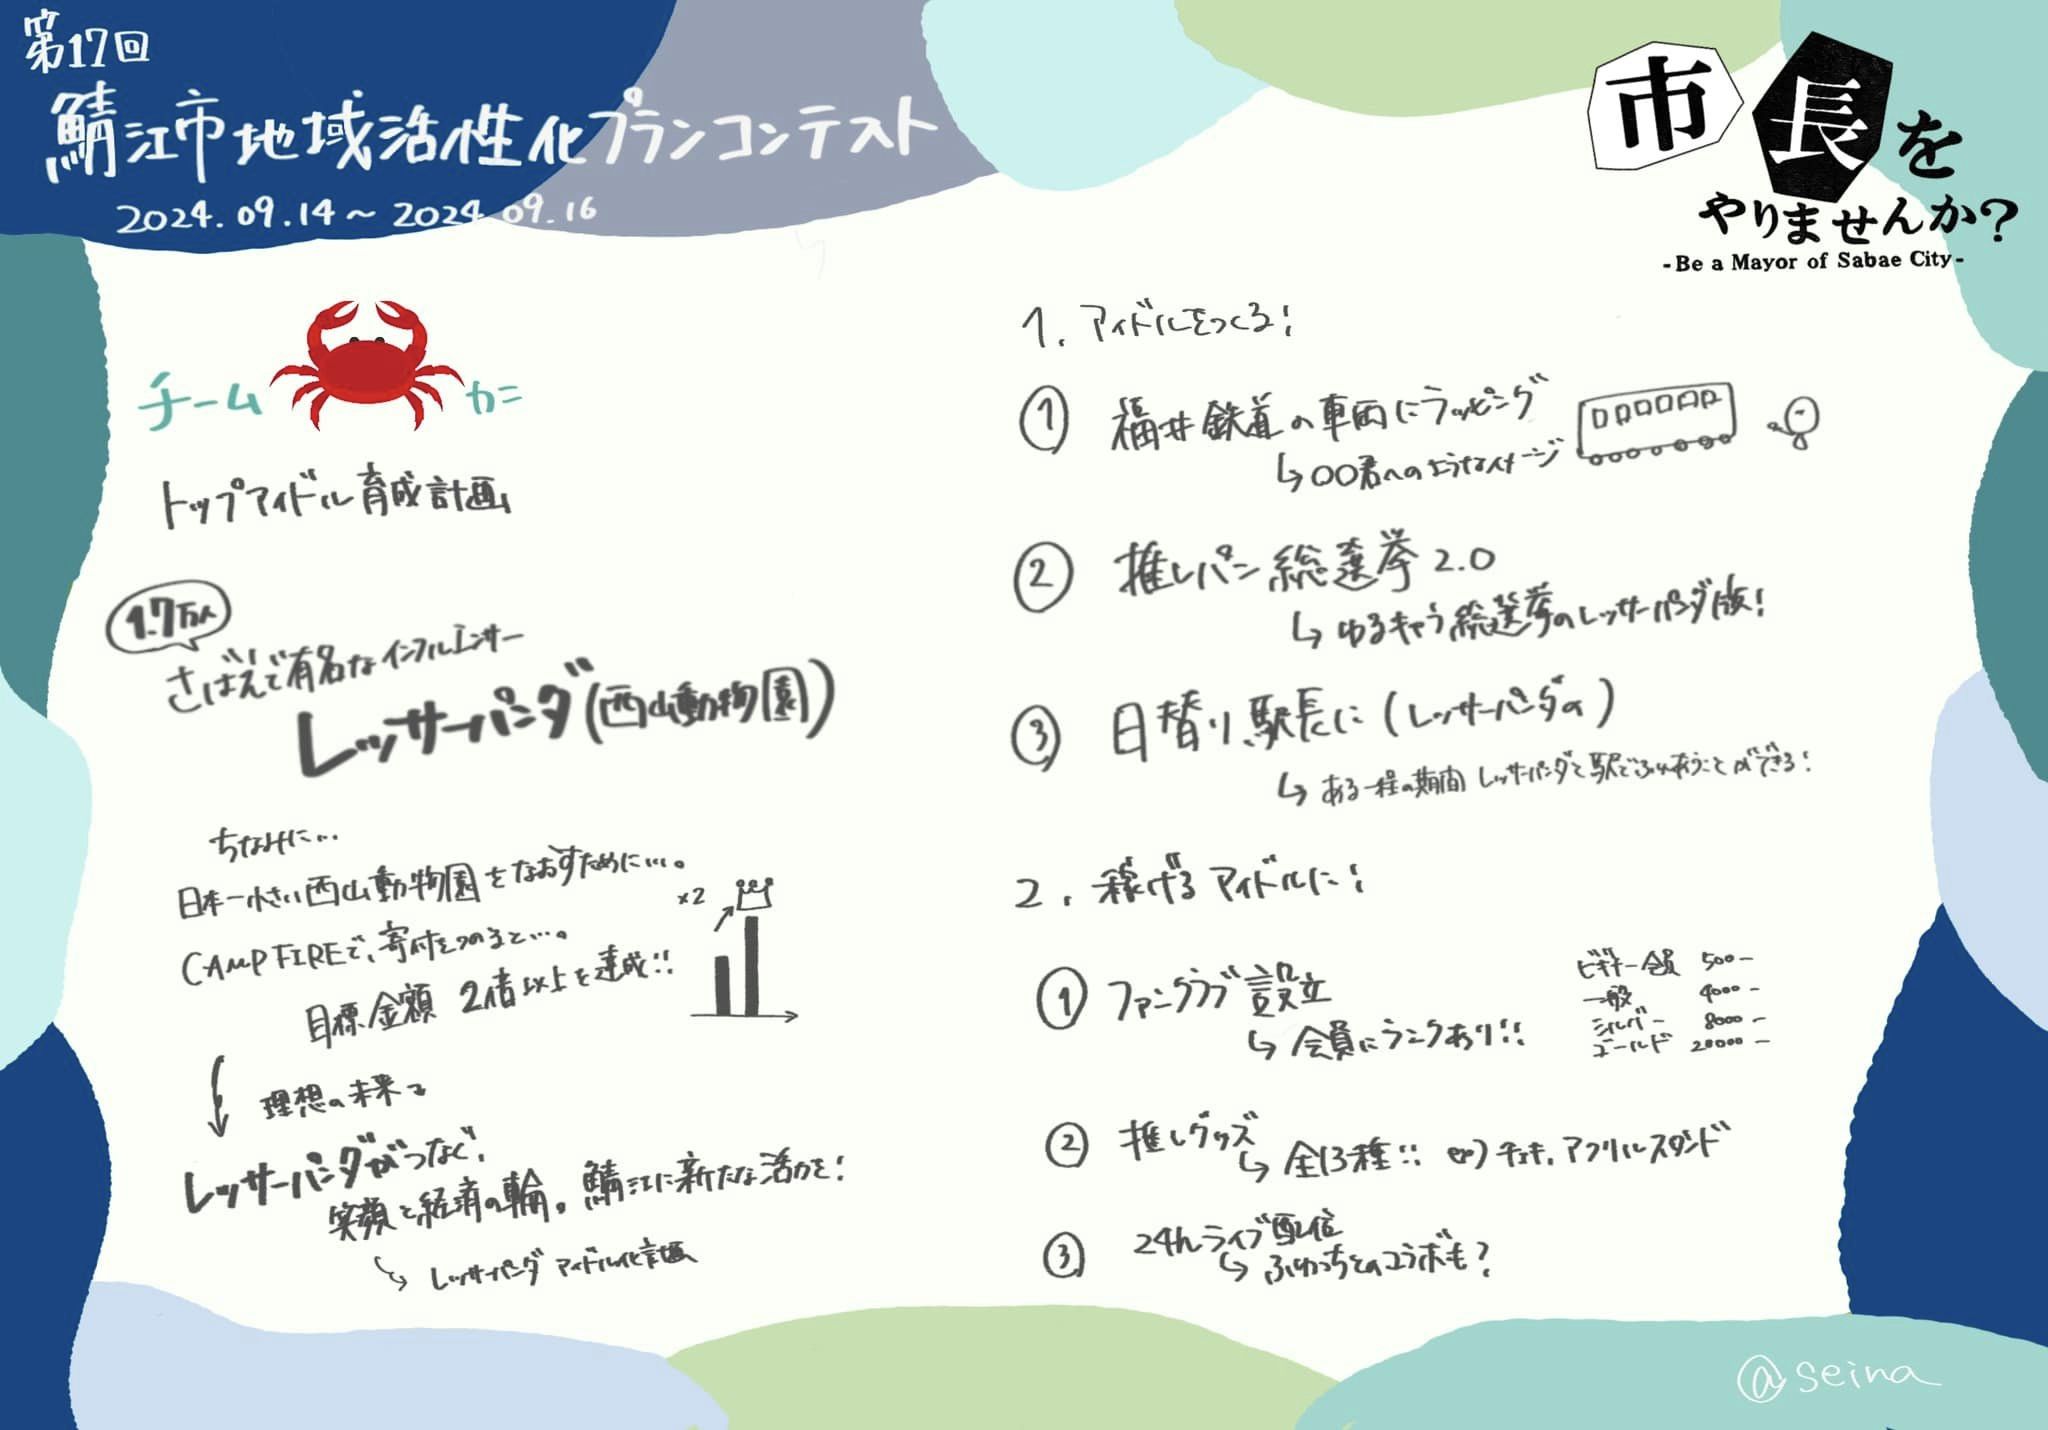 第17回
鯖江市地域活性化プランコンテスト
2024.09.14〜2024.09.16
市長を
やりませんか?
-Be a Mayor of Sabae City-
チーム カニ
トップアイドル育成計画
1.7万人
さばえで有名なインフルエンサー
レッサーパンダ(西山動物園)
ちなみに…
日本一小さい西山動物園をなおすために…。
CAMPFIREで、寄付をつのると…。
目標金額 2倍以上を達成!!
×2
理想の未来って
レッサーパンダがつなぐ、
笑顔と経済の輪。鯖江に新たな活力を!
レッサーパンダ アイドル化計画
1. アイドルをつくる!
① 福井鉄道の車両にラッピング
↳ 〇〇君へのようなイメージ
② 推しパン総選挙2.0
↳ ゆるキャラ総選挙のレッサーパンダ版!
③ 日替り駅長に(レッサーパンダの)
↳ ある一程の期間 レッサーパンダと駅でふれあうことができる!
2. 稼げるアイドルに!
① ファンクラブ設立
↳ 会員にランクあり!!
ビギナー会員 500-
一般 4000-
シルバー 8000-
ゴールド 20000-
② 推しグッズ
↳ 全13種!! ex) チェキ、アクリルスタンド
③ 24hライブ配信
↳ ふわっちとのコラボも?
@seina